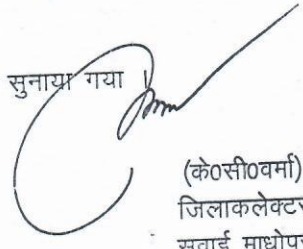 सुनाया गया
(के0सी0वर्मा)
जिलाकलेक्टर
सवाई माधोपुर